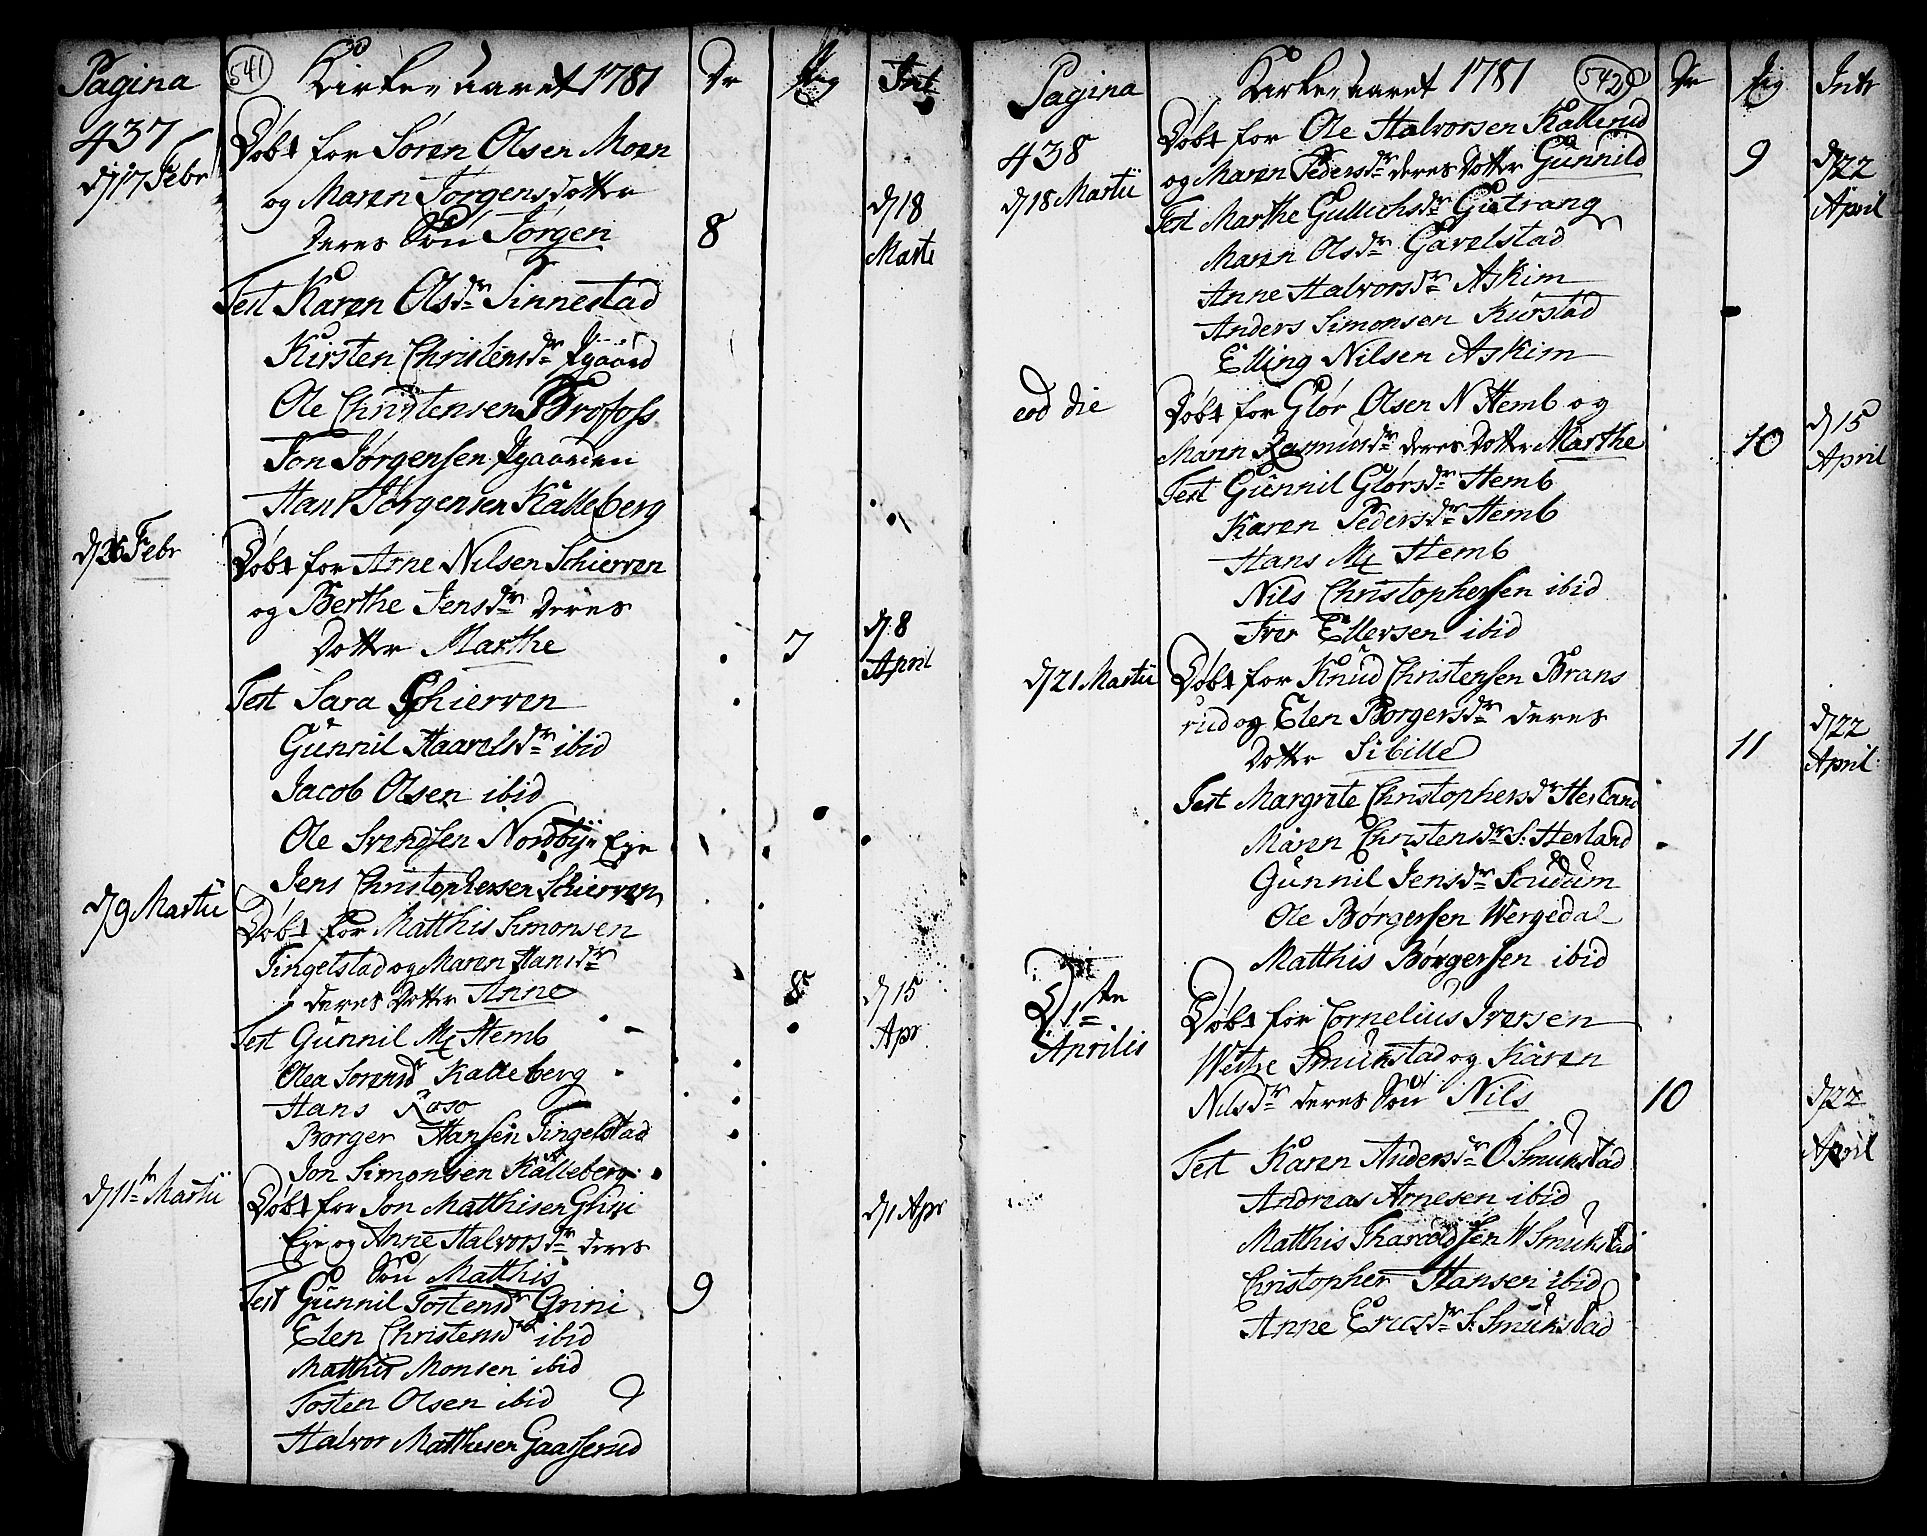 Pagina 541 Kirke-aaret 1781 Dr Pig Int
437
d 17 Febr Døbt for Søren Olsen Moen
og Maren Jørgensdatter
deres Søn Jørgen 8 d 18 Marti
Test Karen Olsdr Tinnestad
Kirsten Christensdr
Ole Christensen Brofoss
Jon Jørgensen
Hans Jørgensen Kalleberg
d 26 Febr Døbt for Arne Nilsen Schierven
og Berthe Jensdr deres
Dotter Marthe 7 d 8 April
Test Sara Schierven
Gunnil Haavelsdr ibid
Jacob Olsen ibid
Ole Svendsen Nordbye Eye
Jens Christophersen Schierven
d 9 Martii Døbt for Matthis Simonsen
Tingelstad og Maren Hansdr
deres Dotter Anne 8 d 15 Apr
Test Gunnil M Hemb
Olea Sorensdr Kalleberg
Hans Roso
Borger Hansen Tingelstad
Jon Simonsen Kalleberg
d 11te Martii Døbt for Jon Matthisen Grini
Eye og Anne Halvorsdr deres d 1 Apr
Søn Matthis
Test Gunnil Tostensdr Grini 9
Elen Christensdr ibid
Matthis Monsen ibid
Tosten Olsen ibid
Halvor Matthisen Gaasserud
Pagina Kirke-aaret 1781 542 Dr Pig Intr
438
d 18 Martii Døbt for Ole Halvorsen Kallerud
og Maren Pedersdr deres Dotter Gunnild 9 d 22 April
Test Marthe Gullichsdr Gietrang
Maren Olsdr Gavelstad
Anne Halvorsdr Askim
Anders Simonsen Kurstad
Elling Nilsen Askim
eod die Døbt for Glør Olsen N Hemb og
Maren Rasmusdr deres Dotter Marthe 10 d 15 April
Test Gunnil Glørsdr Hemb
Karen Pedersdr Hemb
Hans M Hemb
Nils Christophersen ibid
Iver Ellersen ibid
d 21 Martii Døbt for Knud Christensen Brans
rud og Elen Borgersdr deres
Dotter Sibille 11 d 22 April
Test Margrete Christophersdr Herland
Maren Christensdr S: Herland
Gunnil Jensdr Scudum
Ole Børgersen Wergedal
Matthis Børgersen ibid
D 1ste Aprilis Døbt for Cornelius Iversen
Westre Smukstad og Karen
Nilsdr deres Søn Nils 10 d 22 April
Test Karen Andersdr Ø Smukstad
Andreas Arnesen ibid
Matthis Tharaldsen W Smukstad
Christopher Hansen ibid
Anne Ericsdr S: Smukstad